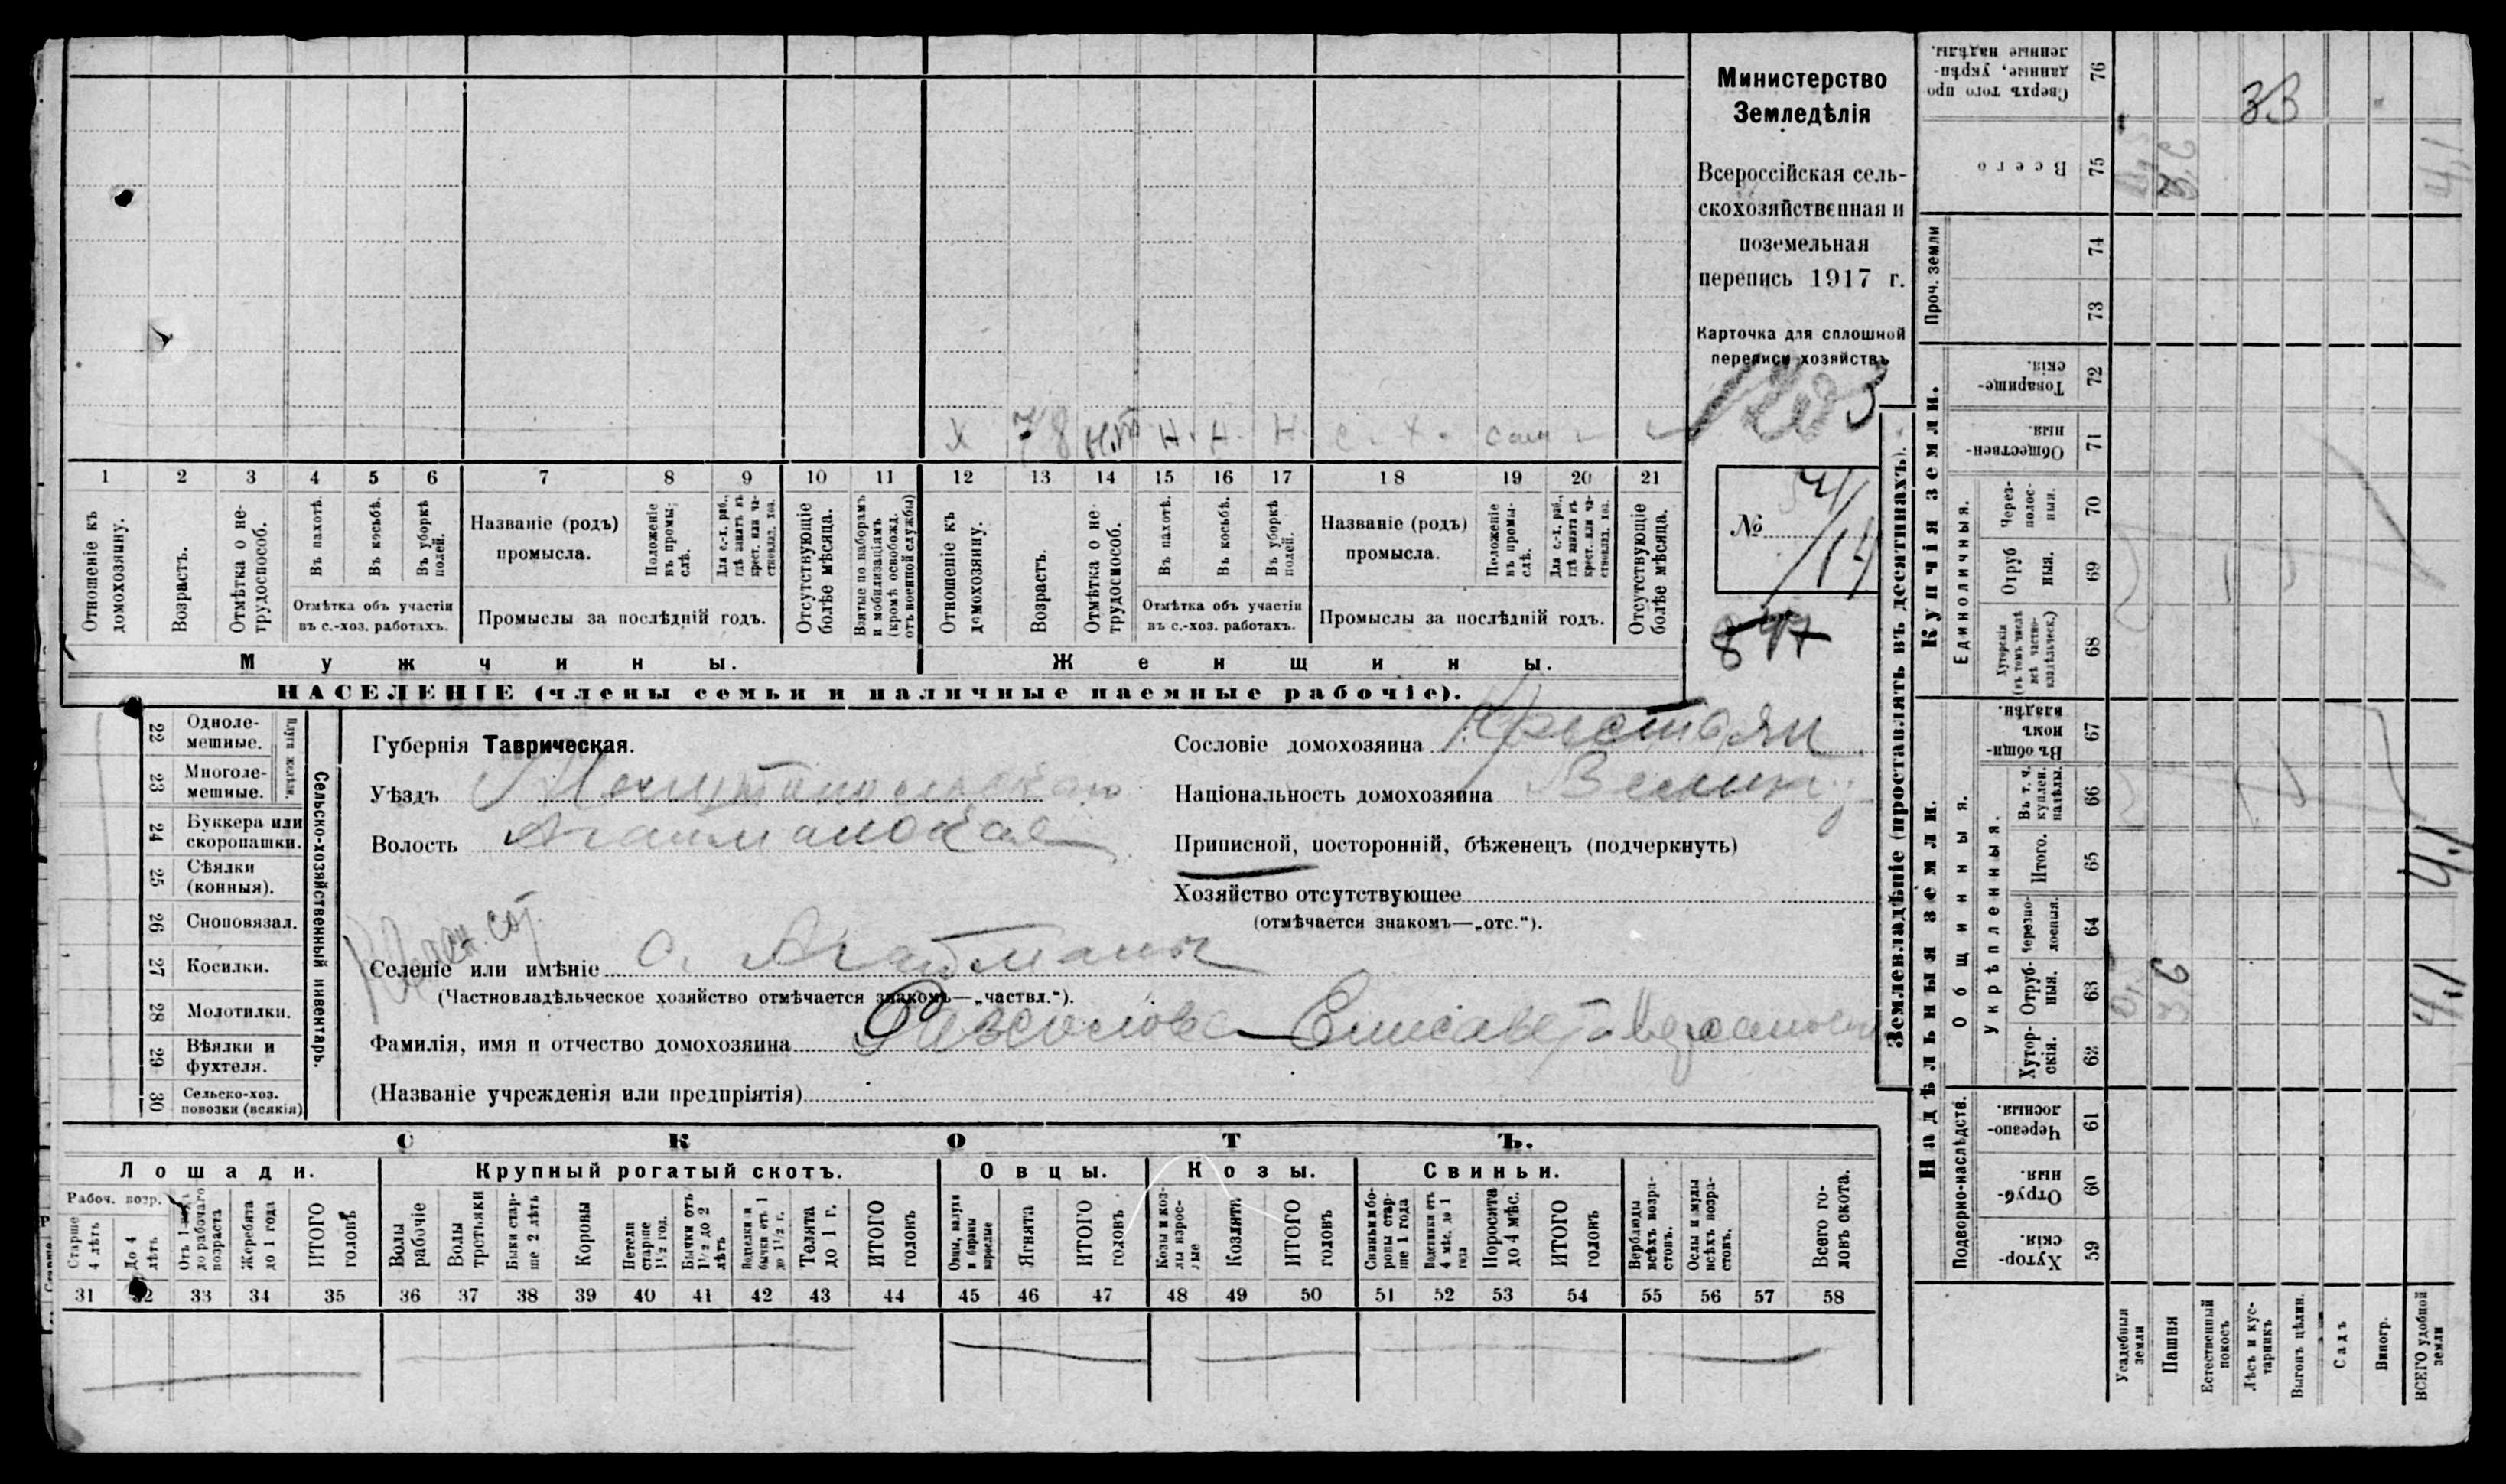 Министерство
Земледѣлія
Всероссійская сель-
скохозяйственная и
поземельная
перепись 1917 г.
Карточка для сплошной
переписи хозяйствъ
1203
№ 
/14
847
х 78 н.т н. н. н. с. х. сам
1 2 3 4 5 6 7 8 9 10 11 12 13 14 15 16 17 18 19 20 21
Отношеніе къ домохозяину.
Возрастъ.
Отмѣтка о не-трудоспособ.
Въ пахотѣ.
Въ косьбѣ.
Въ уборкѣ полей.
Отмѣтка объ участіи
въ с.-хоз. работахъ.
Названіе (родъ)
промысла.
Положеніе въ промы-слѣ.
Для с.-х. раб., гдѣ занятъ въ крест. или ча-стновлад. хоз.
Промыслы за послѣдній годъ.
Отсутствующіе болѣе мѣсяца.
Взятые по наборамъ и мобилизаціямъ (кромѣ освобожд. отъ военной службы)
Отношеніе къ домохозяину.
Возрастъ.
Отмѣтка о не-трудоспособ.
Въ пахотѣ.
Въ косьбѣ.
Въ уборкѣ полей.
Отмѣтка объ участіи
въ с.-хоз. работахъ.
Названіе (родъ)
промысла.
Положеніе въ промы-слѣ.
Для с.-х. раб., гдѣ занята въ крест. или ча-стновлад. хоз.
Промыслы за послѣдній годъ.
Отсутствующіе болѣе мѣсяца.
Мужчины.
Женщины.
НАСЕЛЕНІЕ (члены семьи и наличные наемные рабочіе).
22 Одноле-мешные.
23 Многоле-мешные.
Плуги желѣзн.
24 Буккера или скоропашки.
25 Сѣялки (конныя).
26 Сноповязал.
27 Косилки.
28 Молотилки.
29 Вѣялки и фухтеля.
30 Сельско-хоз. повозки (всякія)
Сельско-хозяйственный инвентарь.
Губернія Таврическая.
Уѣздъ Мелитопольскаго
Волость Агайманская
Селеніе или имѣніе с. Агайманы
(Частновладѣльческое хозяйство отмѣчается знакомъ—„частвл.“).
Фамилія, имя и отчество домохозяина Елисавета
(Названіе учрежденія или предпріятія)
Сословіе домохозяина Крестьян
Національность домохозяина Велик
Приписной, посторонній, бѣженецъ (подчеркнуть)
Хозяйство отсутствующее
(отмѣчается знакомъ—„отс.“).
СКОТЪ.
Лошади.
Крупный рогатый скотъ.
Овцы.
Козы.
Свиньи.
Рабоч. возр.
Старше 4 лѣтъ
До 4 лѣтъ
до рабочаго возраста
Жеребята до 1 года
ИТОГО головъ
Волы рабочіе
Волы третьяки
Быки стар-ше 2 лѣтъ
Коровы
Нетели старше 1½ год.
Бычки отъ 1½ до 2 лѣтъ
бычки отъ 1 до 1½ г.
Телята до 1 г.
ИТОГО головъ
Овцы, валухи и бараны взрослые
Ягнята
ИТОГО головъ
Козы и коз-лы взрос-лые
Козлята
ИТОГО головъ
Свиньи и бо-ровы стар-ше 1 года
4 мѣс. до 1 года
Поросята до 4 мѣс.
ИТОГО головъ
Верблюды всѣхъ возра-стовъ.
Ослы и мулы всѣхъ возра-стовъ.
Всего го-ловъ скота.
31 32 33 34 35 36 37 38 39 40 41 42 43 44 45 46 47 48 49 50 51 52 53 54 55 56 57 58
Землевладѣніе (проставлять въ десятинахъ).
Надѣльныя земли.
Купчія земли.
Проч. земли
Подворно-наслѣдств.
Общинныя.
Укрѣпленныя.
Единоличныя.
Сверхъ того про данные, укрѣп-ленные надѣлы. 76
Всего 75
74
73
Товарище-скія. 72
Обществен-ныя. 71
Через-полос-ныя. 70
Отруб ныя. 69
Хуторскія (въ томъ числѣ всѣ частно-владѣльческ.) 68
Въ общи-номъ владѣн. 67
Въ т. ч. куплен. надѣлы. 66
Итого. 65
Черезпо-лосныя. 64
Отруб-ныя. 63
Хутор-скія. 62
Черезпо-лосныя. 61
Отруб-ныя. 60
Хутор-скія. 59
Усадебныя земли
Пашня
Естественный покосъ
Лѣсъ и кус-тарникъ
Выгонъ цѣлин.
Садъ
Виногр.
ВСЕГО удобной земли
33
4,1
4,1
4,1